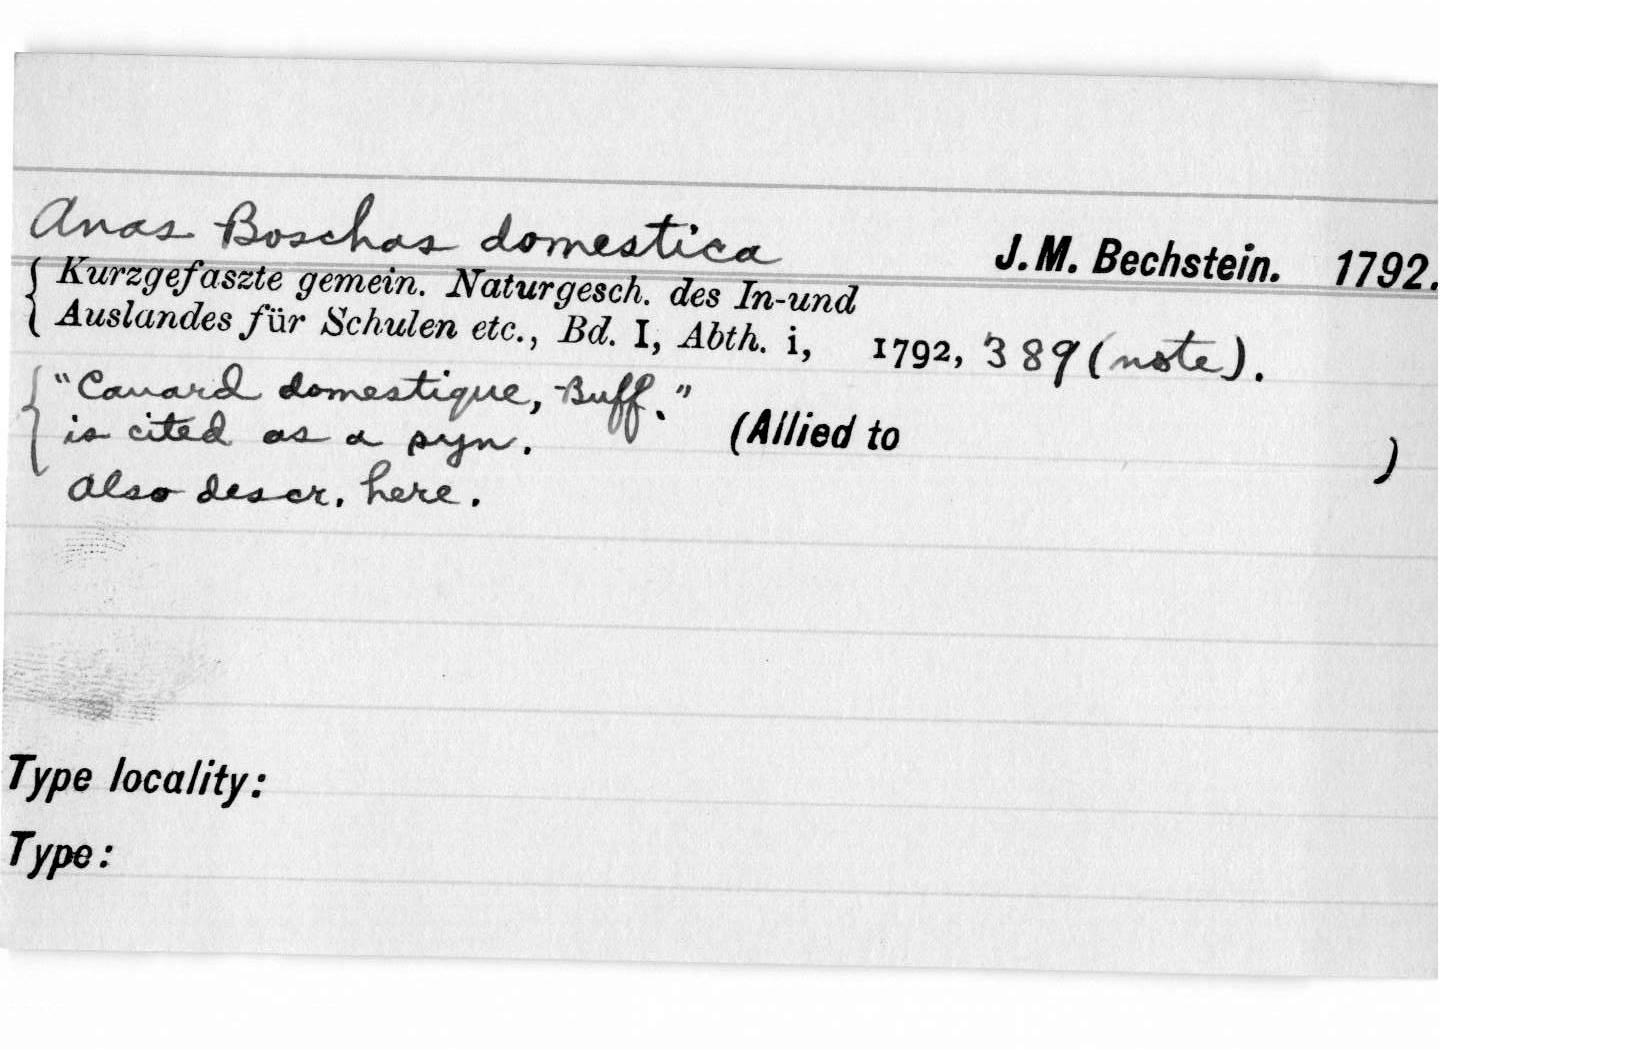 Anas Boschas domestica J. M. Bechstein. 1792.
Kurzgefaszte gemein. Naturgesch. des In-und
Auslandes für Schulen etc., Bd. I, Abth. i, 1792, 389 (note).
"Canard domestique, Buff."
is cited as a syn. (Allied to )
Also descr. here.
Type locality:
Type: